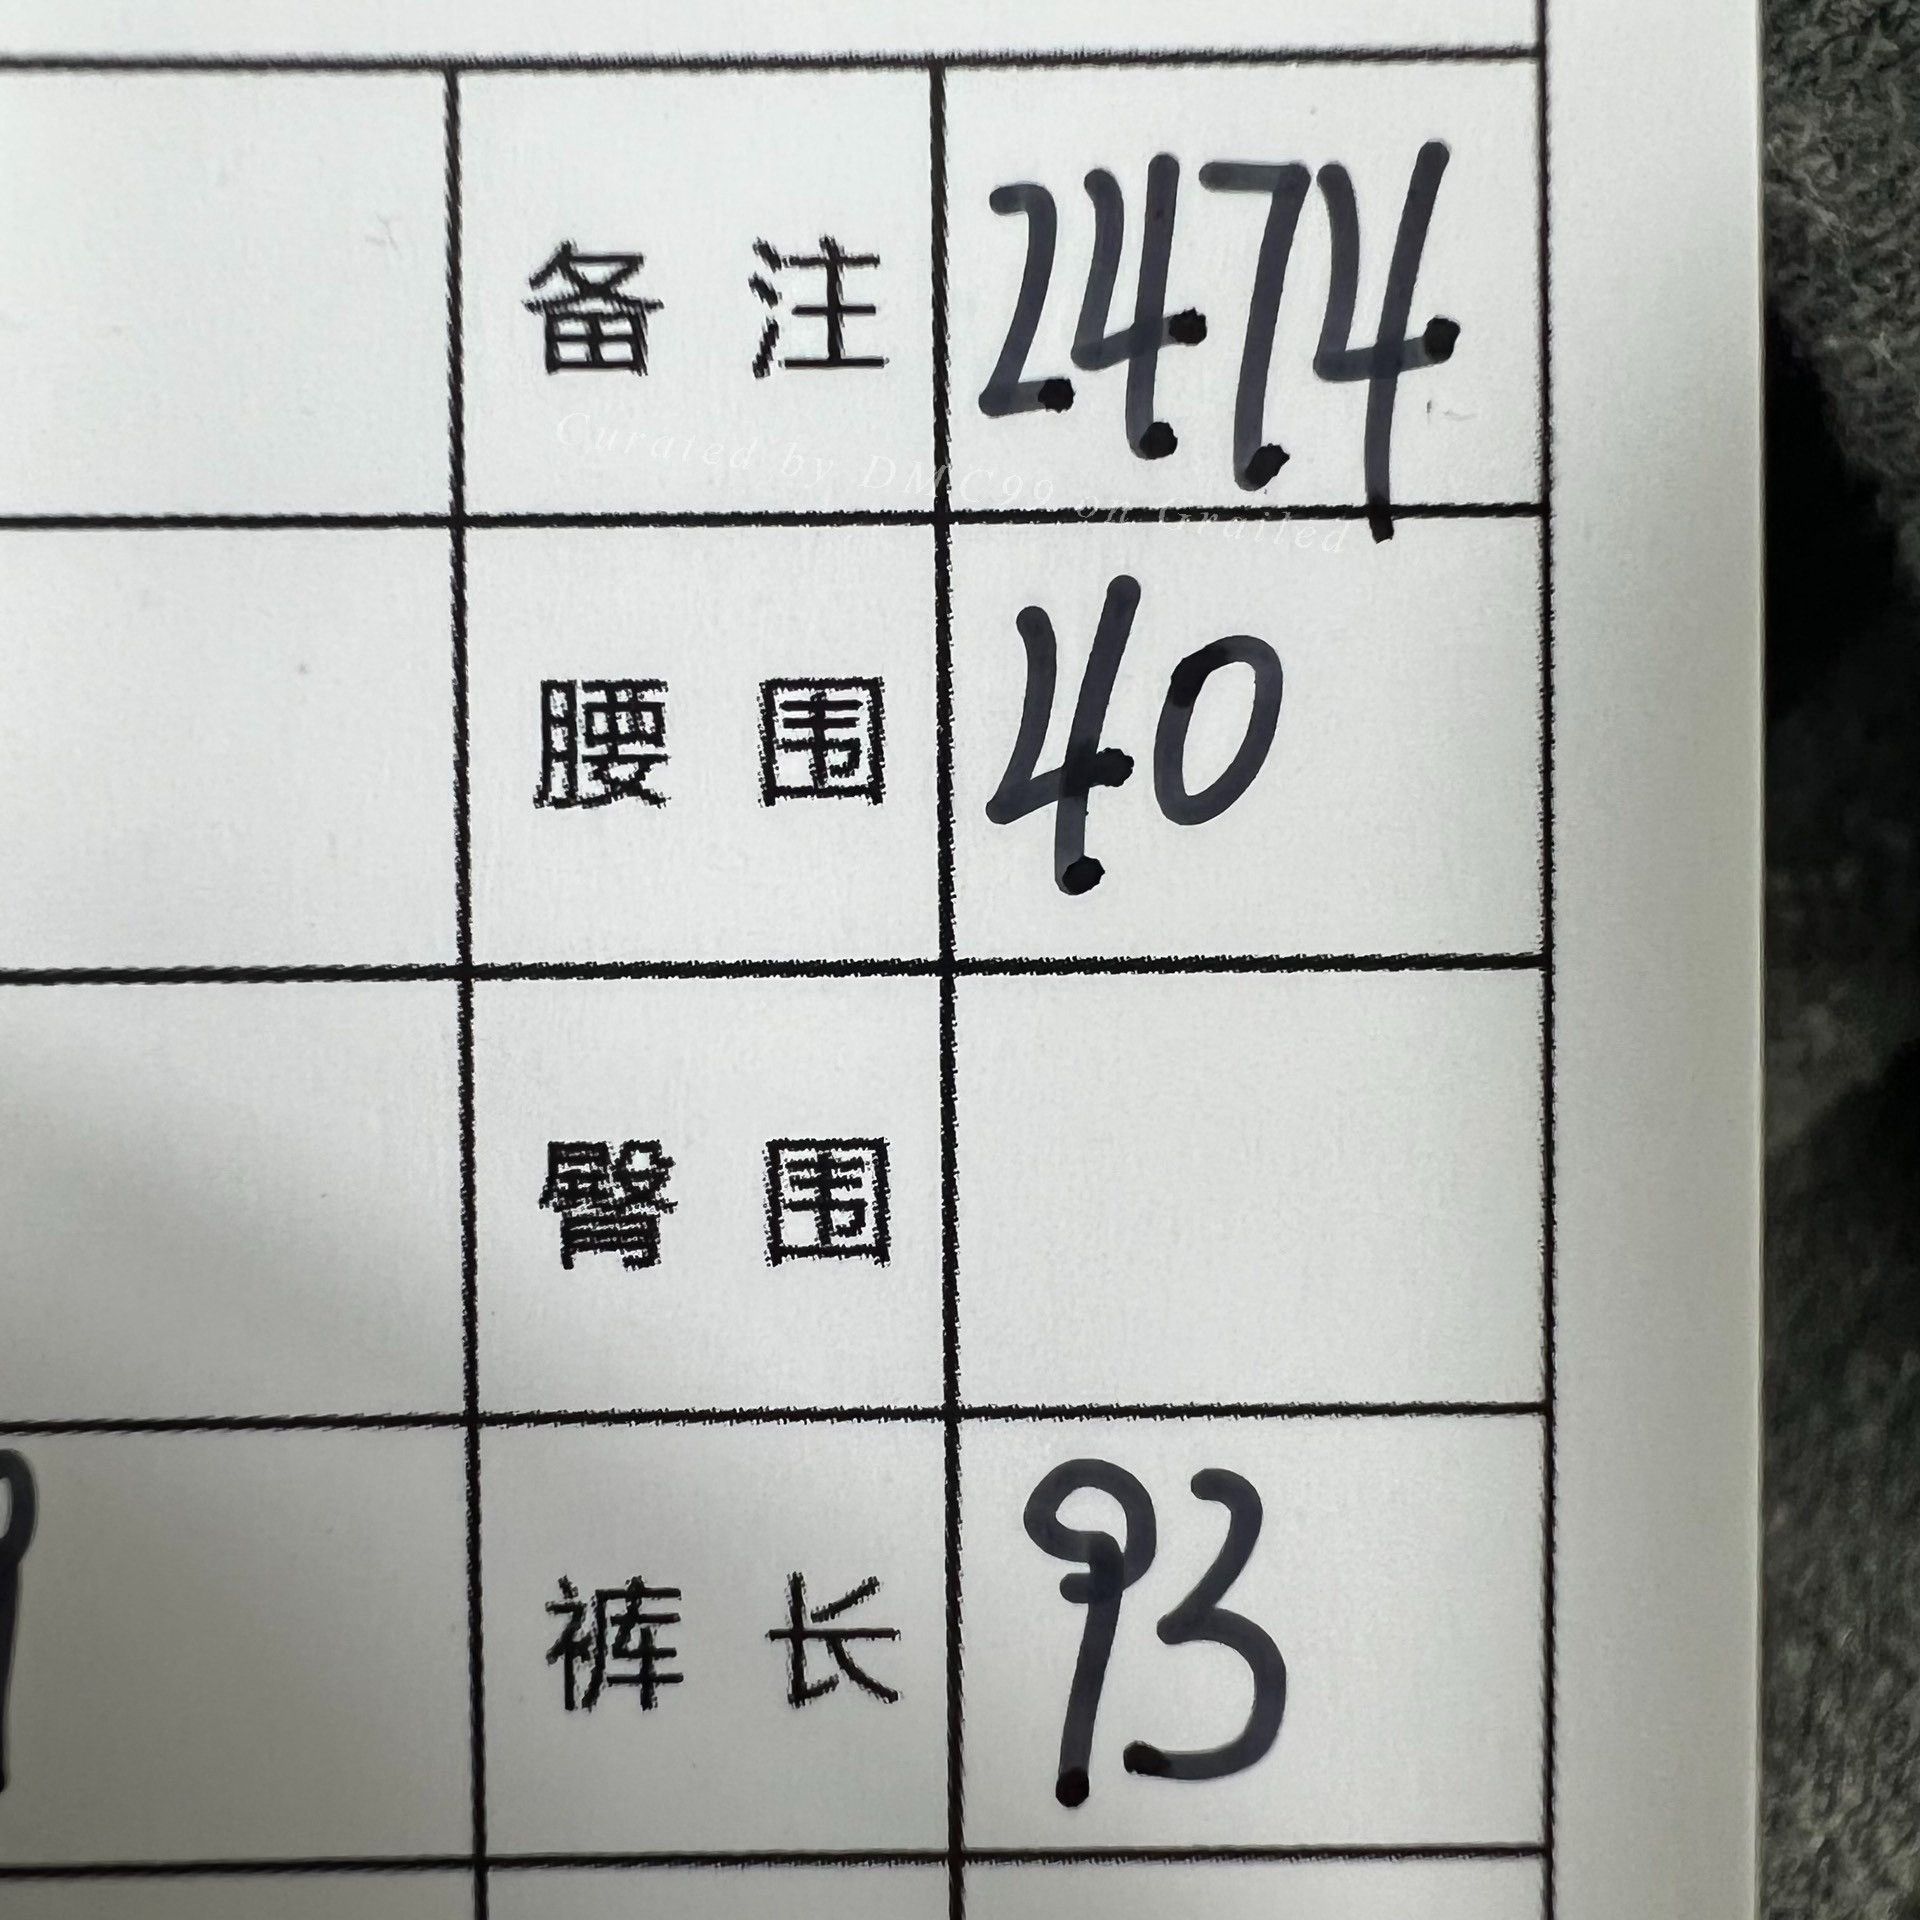 备 注 2474
Curated by DMC99 on Grailed
腰 围 40
臀 围
裤 长 93